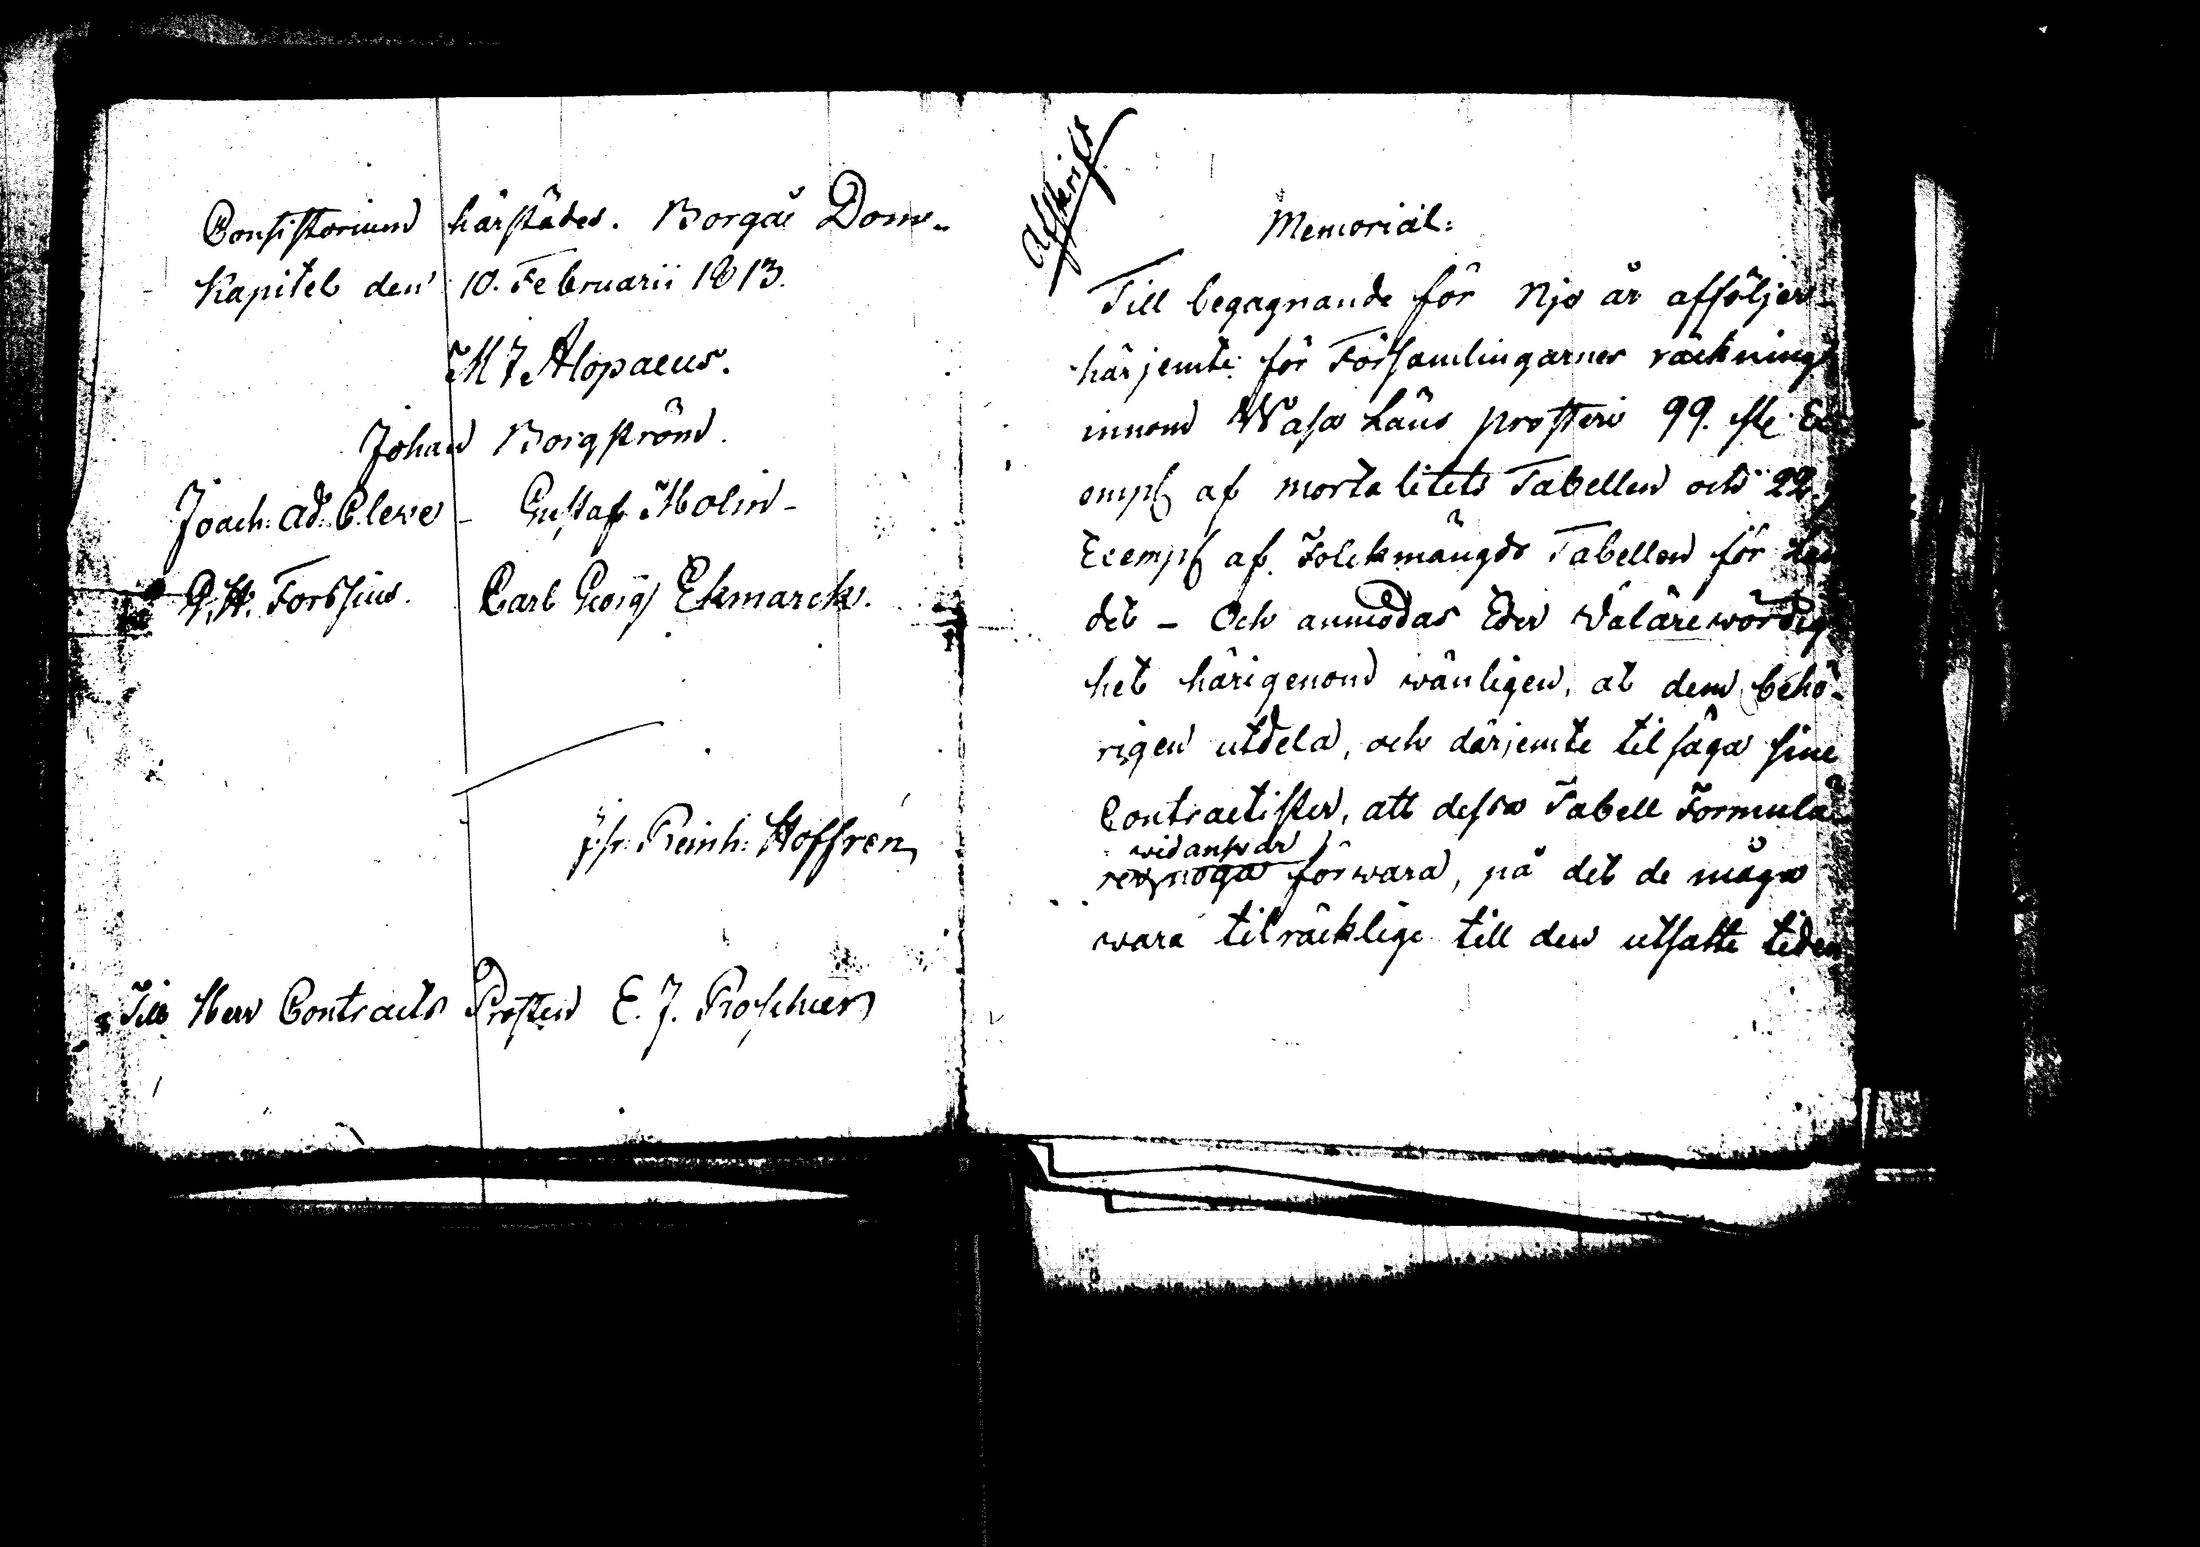 Consistorium härstädes. Borgå Dom-
Kapitel den 10. Februarii 1813.
M J Alopaeus.
Johan Borgström.
Joach: Ad: Cleve - Gustaf Molin -
G. H. Fortelius. Carl Georg Ekmarck.
Reinh: Hoffrén
Till Herr Contracts Prosten E. J. Roschier
Afskrift
Memorial:
Till begagnande för Nio år afföljer
härjemte för Församlingarnes räkning
innom Wasa Läns prosteri 99. ste Ex-
empl af mortalitets Tabellen och 22.
Exempl af Folckmängds Tabellen för
det - Och anmodas Eder Välärewördig-
het härigenom wänligen, at dem behö-
rigen utdela, och därjemte tilsäga sine
Contractister, att dessa Tabell Formula-
wid answar
rer noga förwara, på det de måga
wara tilräcklige till den utsatte tiden